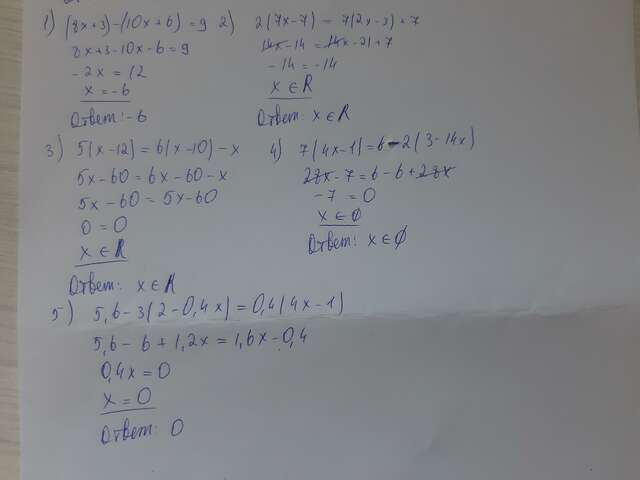 1) (8x+3)-(10x+6)=9
8x+3-10x-6=9
-2x=12
x=-6
Ответ:-6
2) 2(7x-7)=7(2x-3)+7
14x-14=14x-21+7
-14=-14
x∈R
Ответ: x∈R
3) 5(x-12)=6(x-10)-x
5x-60=6x-60-x
5x-60=5x-60
0=0
x∈R
Ответ: x∈R
4) 7(4x-1)=6-2(3-14x)
28x-7=6-6+28x
-7=0
x∈∅
Ответ: x∈∅
5) 5,6-3(2-0,4x)=0,4(4x-1)
5,6-6+1,2x=1,6x-0,4
0,4x=0
x=0
Ответ: 0